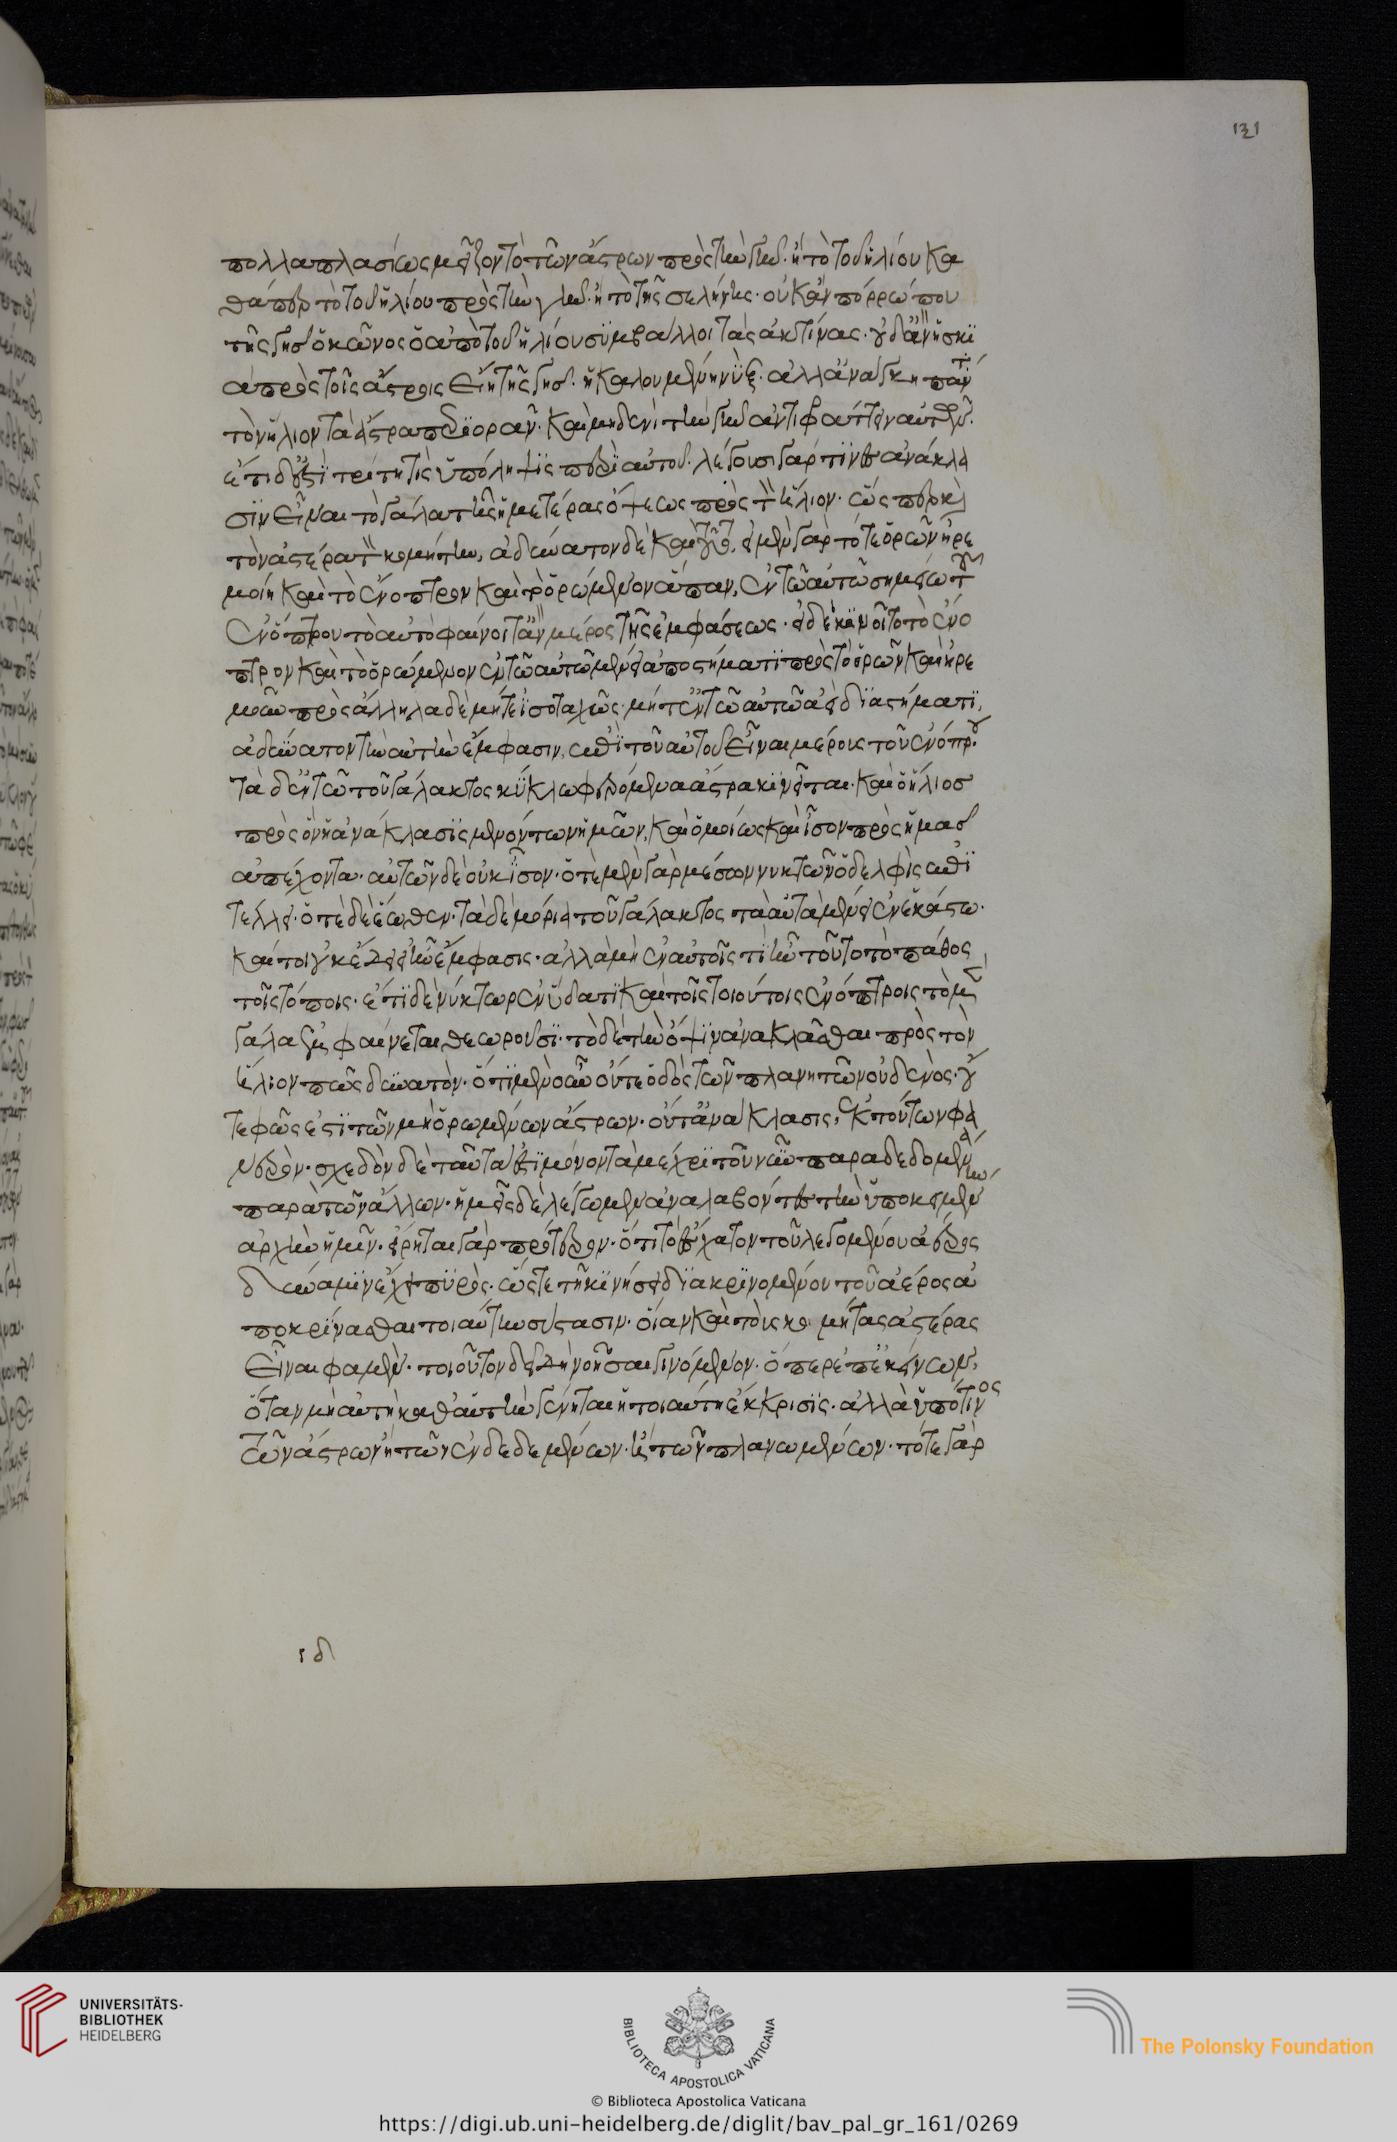 πολλαπλασίως μεῖζον τὸ τῶν ἄστρων πρὸς τὴν γῆν. ἢ τὸ τοῦ ἡλίου κα
θάπερ τὸ τοῦ ἡλίου πρὸς τὴν γῆν. ἢ τὸ τῆς σελήνης. οὐκ ἂν πόρρω που
τῆς γῆς ὁ κῶνος ὁ ἀπὸ τοῦ ἡλίου συμβάλλοι τὰς ἀκτῖνας. οὐδ' ἂν ἡ σκι
ὰ πρὸς τοῖς ἄστροις εἴη τῆς γῆς. ἡ καλουμένη νύξ. ἀλλ' ἀνάγκη πάντ
τὸν ἥλιον τὰ ἄστρα περιορᾶν. καὶ μηδενὶ τὴν γῆν ἀντιφράττειν αὐτῶν.
ἔτι δ' ἐστὶ τρίτη τὶς ὑπόληψις περὶ αὐτοῦ. λέγουσι γάρ τινες ἀνάκλα
σιν εἶναι τὸ γάλα τῆς ἡμετέρας ὄψεως πρὸς τὸν ἥλιον. ὥσπερ καὶ
τὸν ἀστέρα τὸν κομήτην, ἀδύνατον δὲ καὶ τοῦτο, εἰ μὲν γὰρ τό τε ὁρῶν ἠρε
μοίη καὶ τὸ ἔνοπτρον καὶ τὸ ὁρώμενον ἅπαν, ἐν τῶ αὐτῶ σημείω τοῦ
ἐνόπτρου τὸ αὐτὸ φαίνοιτ' ἂν μέρος τῆς ἐμφάσεως. εἰ δὲ κινοῖτο τὸ ἔνο
πτρον καὶ τὸ ὁρώμενον ἐν τῶ αὐτῶ μένει ἀποστήματι πρὸς τὸ ὁρῶν καὶ ἠρε
μοῦν πρὸς ἄλληλα δὲ μήτε ἰσοταχῶς. μήτ' ἐν τῶ αὐτῶ ἀεὶ διαστήματι,
ἀδύνατον τὴν αὐτὴν ἔμφασιν, ἐπὶ τοῦ αὐτοῦ εἶναι μέρους τοῦ ἐνόπτρου.
τὰ δ' ἐν τῶ τοῦ γάλακτος κύκλω φερόμενα ἄστρα κινεῖται. καὶ ὁ ἥλιος
πρὸς ὃν ἡ ἀνάκλασις μενόντων ἡμῶν, καὶ ὁμοίως καὶ ἴσον πρὸς ἡμᾶς
ἀπέχοντα. αὐτῶν δὲ οὐκ ἴσον. ὁτὲ μὲν γὰρ μέσων νυκτῶν ὁ δελφὶς ἐπι
τέλλει. ὁτὲ δὲ ἕωθεν. τὰ δὲ μόρια τοῦ γάλακτος τὰ αὐτὰ μένει ἐν ἑκάστω.
καίτοι οὐκ ἔδει εἰ ἦν ἔμφασις. ἀλλὰ μὴ ἐν αὐτοῖς τι ἦν τοῦτο τὸ πάθος
τοῖς τόποις. ἔτι δὲ νύκτωρ ἐν ὕδατι καὶ τοῖς τοιούτοις ἐνόπτροις τὸ μὲν
γάλα ἐμφαίνεται θεωροῦσι. τὸ δὲ τὴν ὄψιν ἀνακλᾶσθαι πρὸς τὸν
ἥλιον πῶς δυνατὸν. ὅτι μὲν οὖν οὔτε ὁδὸς τῶν πλανητῶν οὐδενὸς. οὔ
τε φῶς ἐστι τῶν μὴ ὁρωμένων ἄστρων. οὔτ' ἀνάκλασις, ἐκ τούτων φα
νερόν. σχεδὸν δὲ ταῦτά ἐστι μόνον τὰ μέχρι τοῦ νῦν παραδεδομένα
παρὰ τῶν ἄλλων. ἡμεῖς δὲ λέγωμεν ἀναλαβόντες τὴν ὑποκειμένην
ἀρχὴν ἡμῖν. εἴρηται γὰρ πρότερον. ὅτι τὸ ἔσχατον τοῦ λεγομένου ἀέρος
δύναμιν ἔχει πυρὸς. ὥστε τῇ κινήσει διακρινομένου τοῦ ἀέρος ἀ
ποκρίνασθαι τοιαύτην σύστασιν. οἵαν καὶ τοὺς κομήτας ἀστέρας
εἶναι φαμὲν. τοιοῦτον δεῖ δὴ νοῆσαι γινόμενον. ὅπερ ἐπ' ἐκείνων,
ὅταν μὴ αὐτὴ καθ' αὑτὴν γένηται ἡ τοιαύτη ἔκκρισις. ἀλλὰ ὑπό τινος
τῶν ἄστρων ἢ τῶν ἐνδεδεμένων. ἢ τῶν πλανωμένων. τότε γὰρ
ιδ
131
UNIVERSITÄTS-
BIBLIOTHEK
HEIDELBERG
BIBLIOTECA APOSTOLICA VATICANA
The Polonsky Foundation
© Biblioteca Apostolica Vaticana
https://digi.ub.uni-heidelberg.de/diglit/bav_pal_gr_161/0269